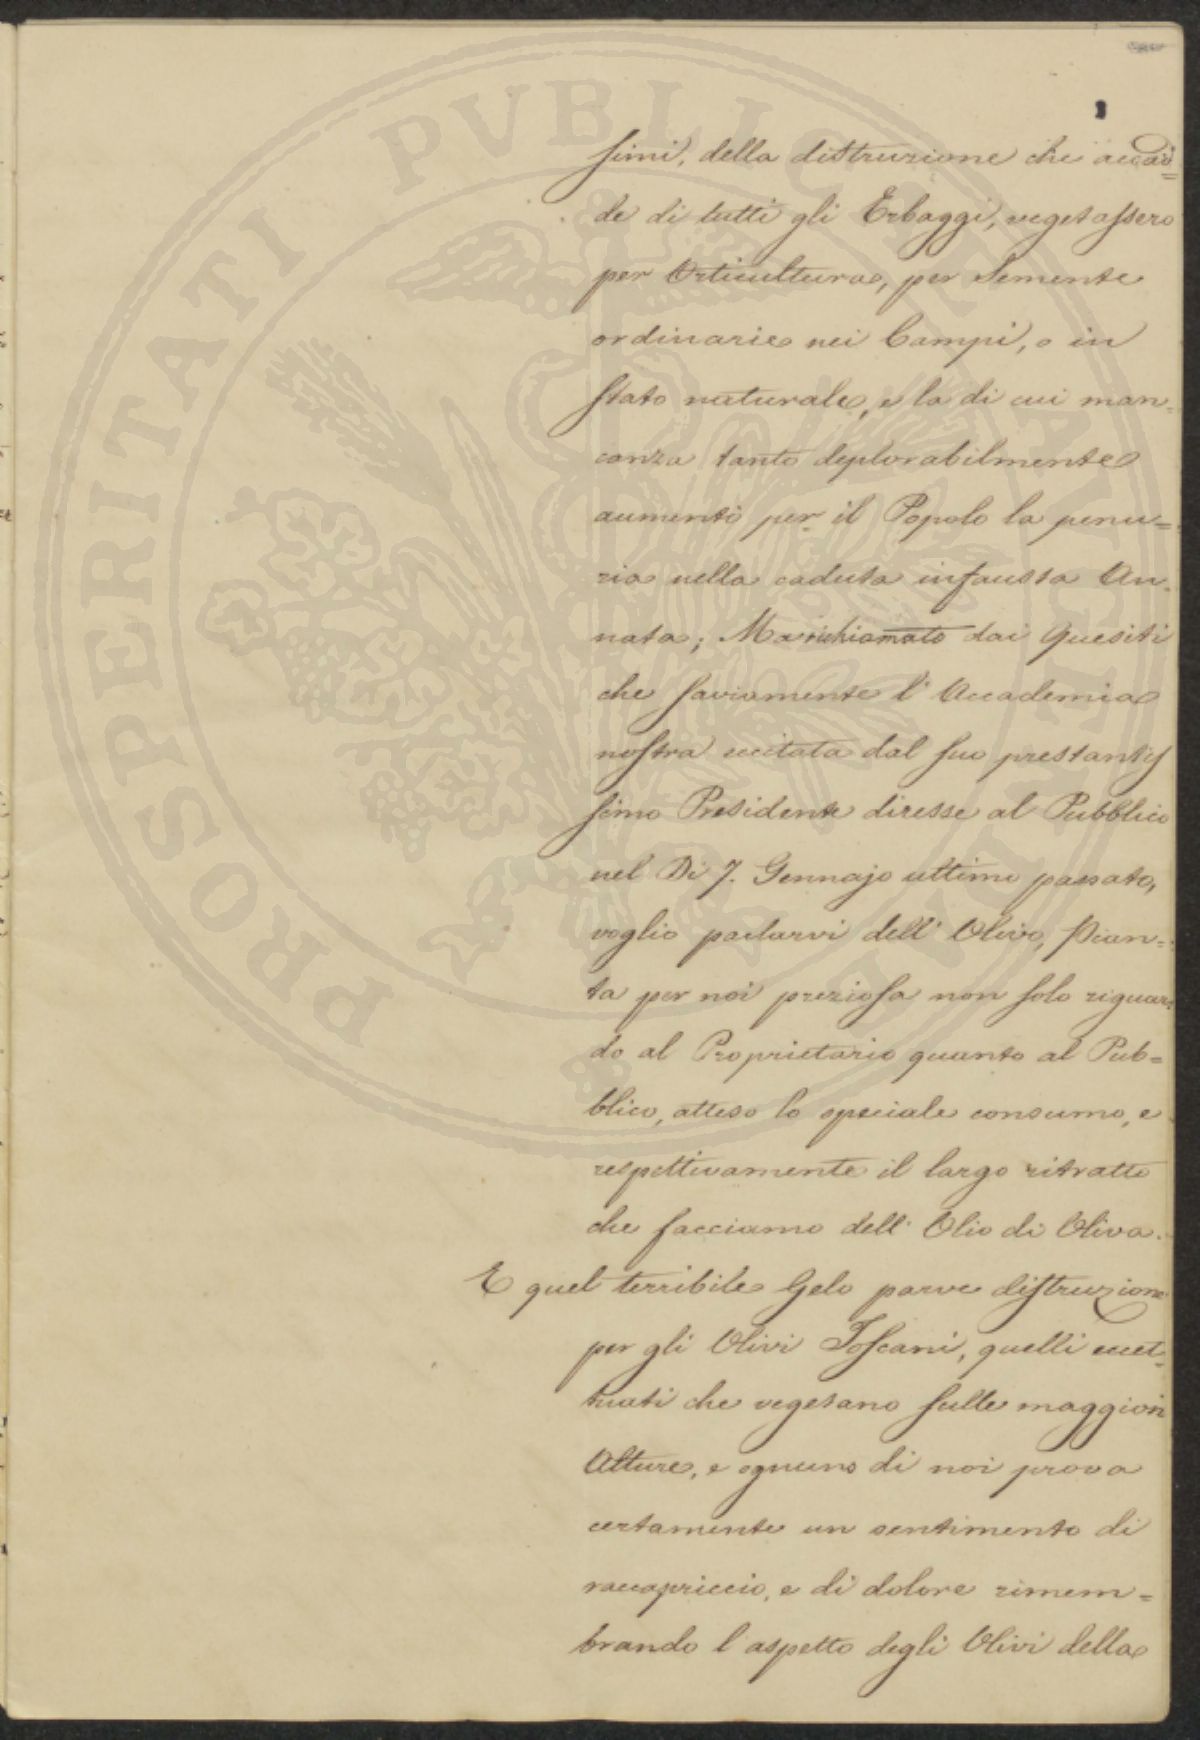 PROSPERITATI PVBLICAE AVGENDAE
simi, della distruzione che accad=
de di tutti gli Erbaggi, vegetassero
per Orticultura, per Semente
ordinarie nei Campi, o in
stato naturale, e la di cui man=
canza tanto deplorabilmente
aumentò per il Popolo la penu=
ria nella caduta infausta An=
nata; Ma richiamato dai Quesiti
che saviamente l'Accademia
nostra eccitata dal suo prestantis
simo Presidente diresse al Pubblico
nel Dì 7. Gennajo ultimo passato,
voglio parlarvi dell'Olivo, Pian=
ta per noi preziosa non solo riguar
do al Proprietario quanto al Pub=
blico, atteso lo speciale consumo, e
respettivamente il largo ritratto
che facciamo dell'Olio di Oliva.
E quel terribile Gelo parve distruzione
per gli Olivi Toscani, quelli eccet=
tuati che vegetano sulle maggiori
Alture, e ognuno di noi prova
certamente un sentimento di
raccapriccio, e di dolore rimem=
brando l'aspetto degli Olivi della